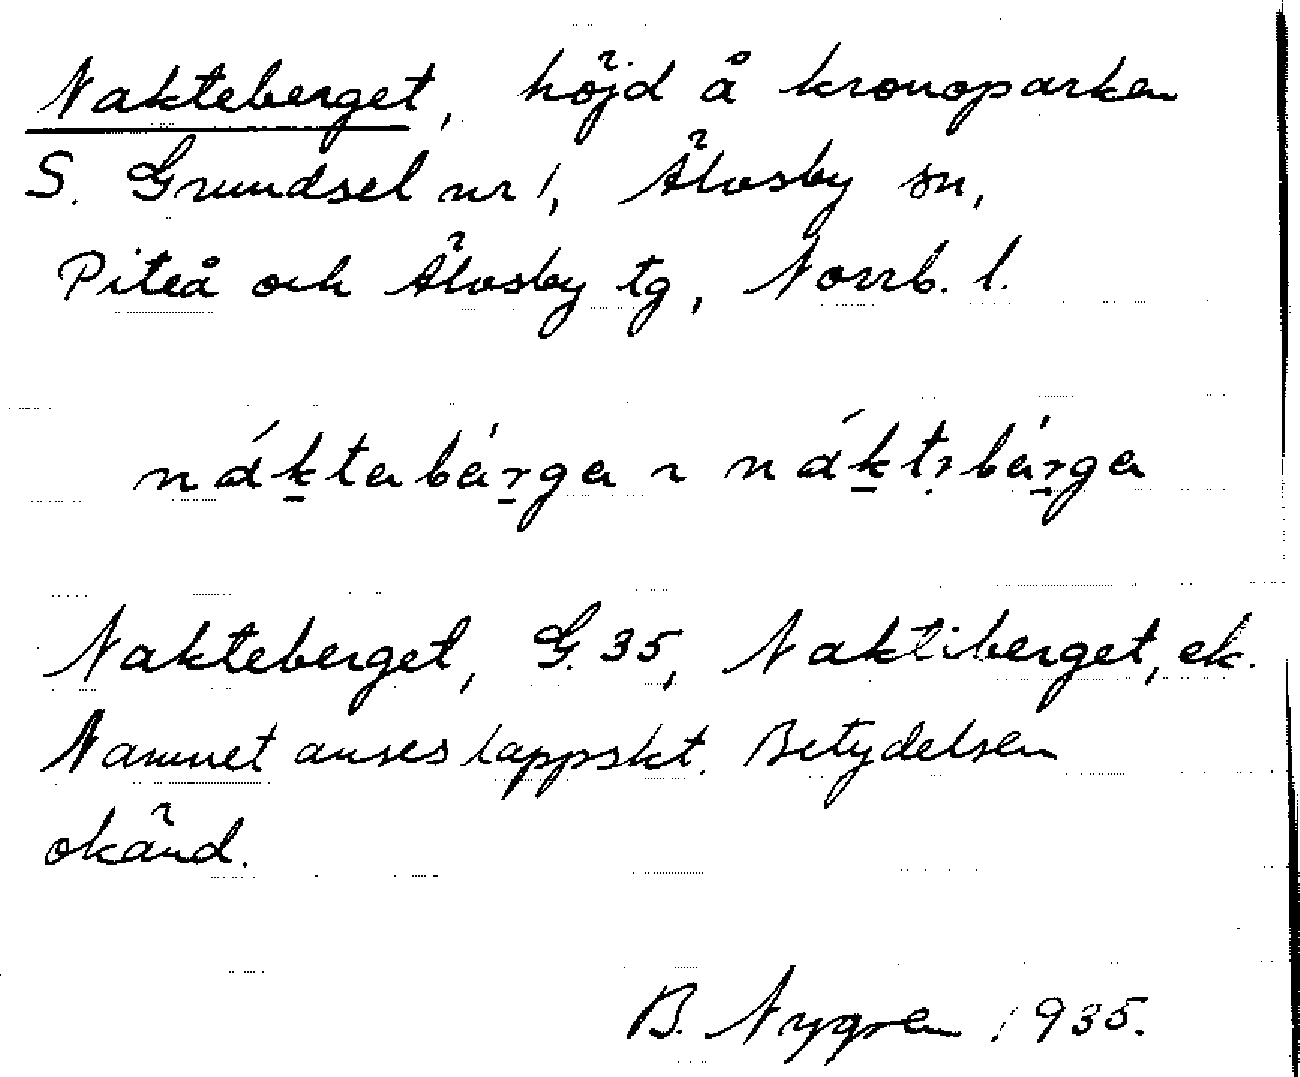 Nakteberget, höjd å kronoparken
S. Grundsel nr 1, Älvsby sn,
Piteå och Älvsby tg, Norrb. l.
Nakteberget, G. 35, Naktiberget, ek.
Namnet anses lappskt. Betydelsen
okänd.
B. Nygren 1935.